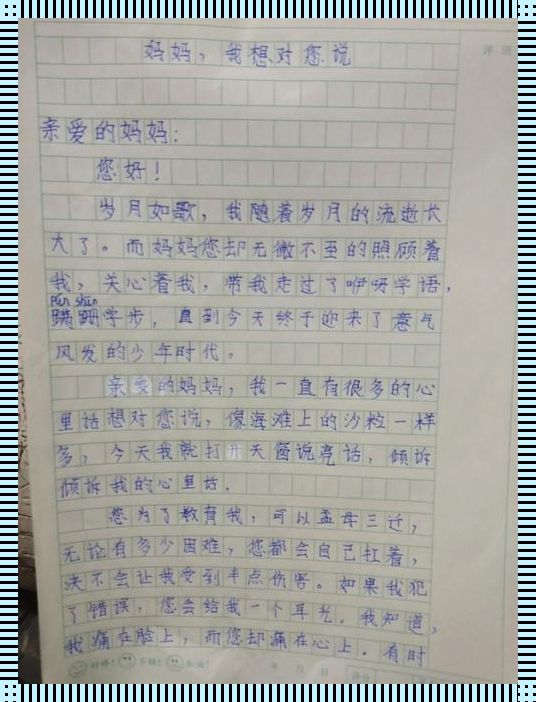 妈妈，我想对您说
评语
亲爱的妈妈：
您好！
岁月如歌，我随着岁月的流逝长
大了。而妈妈您却无微不至的照顾着
我，关心着我，带我走过了咿呀学语，
Pán shān
蹒跚学步，直到今天终于迎来了意气
风发的少年时代。
亲爱的妈妈，我一直有很多的心
里话想对您说，像海滩上的沙粒一样
多，今天我就打开天窗说亮话，倾诉
倾诉我的心里话。
您为了教育我，可以孟母三迁，
无论有多少困难，您都会自己扛着，
决不会让我受到半点伤害。如果我犯
了错误，您会给我一个耳光。我知道，
我痛在脸上，而您却痛在心上。有时
好棒！ 不错！ 加油！ 年 月 日 评分